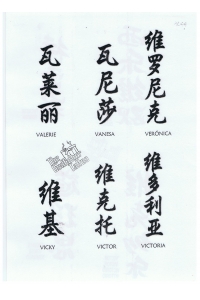 瓦莱丽
VALERIE
瓦尼莎
VANESA
维罗尼克
VERÓNICA
维基
VICKY
维克托
VICTOR
维多利亚
VICTORIA